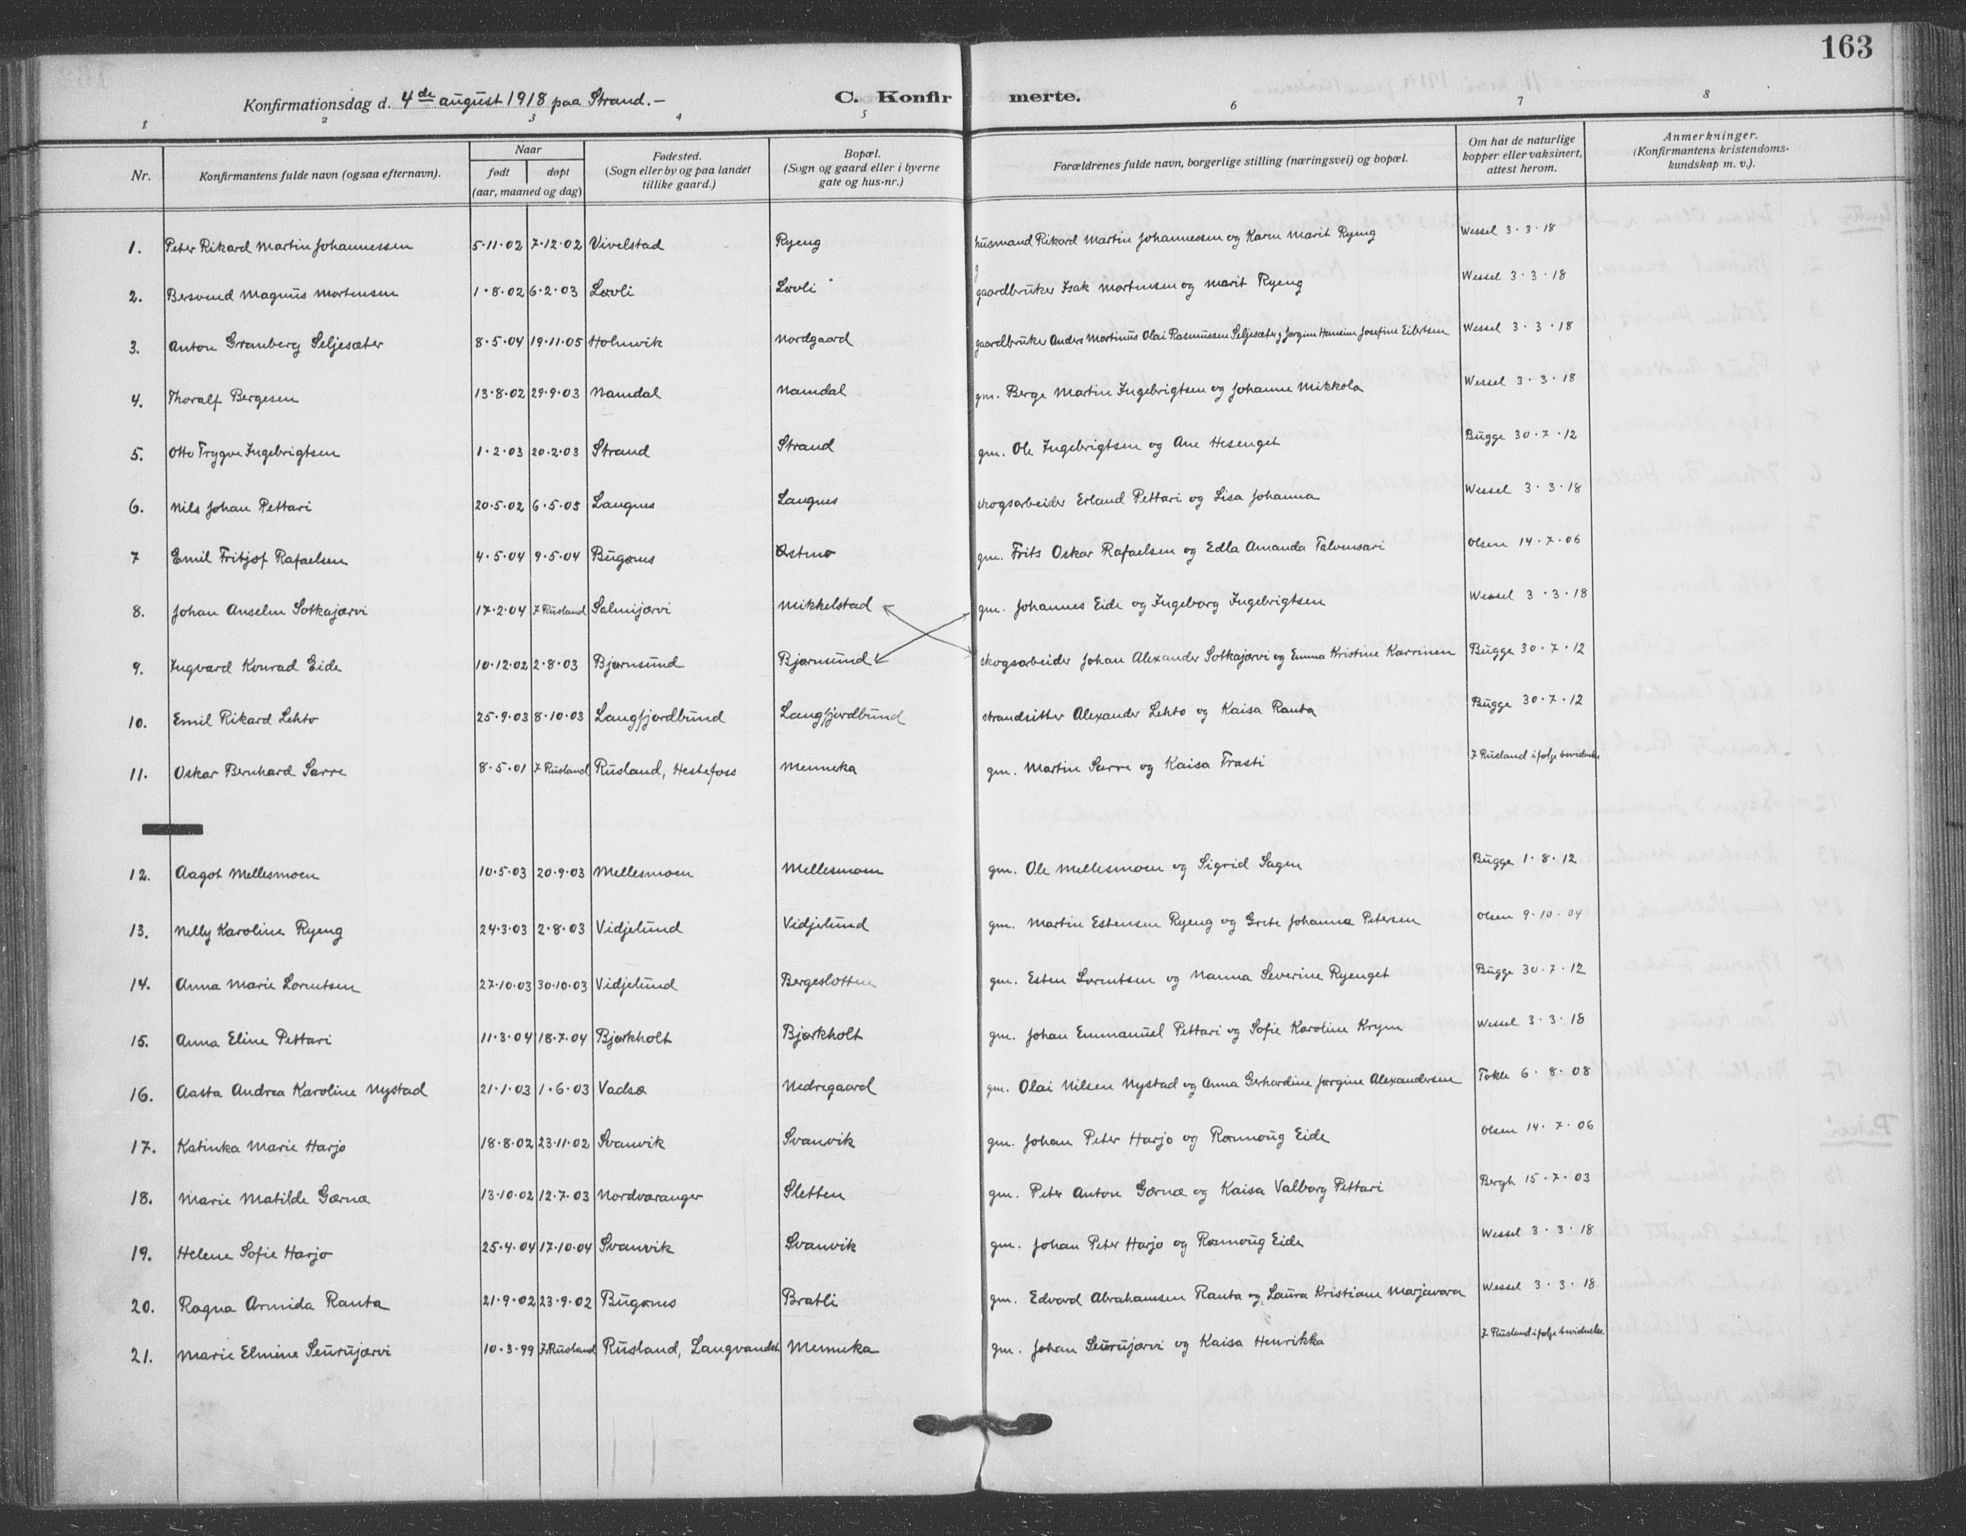 163
Konfirmationsdag d. 4de august 1918 paa Strand.- C. Konfirmerte.
1 2 3 4 5 6 7 8
Nr. Konfirmantens fulde navn (ogsaa efternavn). Naar født døpt (aar, maaned og dag) Fødested. (Sogn eller by og paa landet tillike gaard.) Bopæl. (Sogn og gaard eller i byerne gate og hus-nr.) Forældrenes fulde navn, borgerlige stilling (næringsvei) og bopæl. Om hat de naturlige kopper eller vaksinert, attest herom. Anmerkninger. (Konfirmantens kristendomskundskap m. v.).
1. Peter Rikard Martin Johannessen 5·11·02 7·12·02 Vivelstad Ryeng husmand Rikard Martin Johannessen og Karen Marit Ryeng Wessel 3·3·18
2. Bersvend Magnus Mortensen 1·8·02 6·2·03 Løvli Løvli gaardbruker Isak Mortensen og Marit Ryeng Wessel 3·3·18
3. Anton Granberg Seljesæter 8·5·04 19·11·05 Holmvik Nordgaard gaardbruker Anders Martinus Olai Rasmussen Seljesæter og Jørgine Hansine Josefine Eilertsen Wessel 3·3·18
4. Thoralf Bergesen 13·8·02 29·9·03 Namdal Namdal gm. Berge Martin Ingebrigtsen og Johanne Mikkola Wessel 3·3·18
5. Otto Trygve Ingebrigtsen 1·2·03 20·2·03 Strand Strand gm. Ole Ingebrigtsen og Ane Hesenget Bugge 30·7·12
6. Nils Johan Pettari 20·5·02 6·5·05 Langnes Langnes skogsarbeider Erland Pettari og Lisa Johanna Wessel 3·3·18
7 Emil Fritjof Rafaelsen 4·5·04 9·5·04 Bugønes Østmo gm. Frits Oskar Rafaelsen og Edla Amanda Talvensari Olsen 14·7·06
8. Johan Anselm Sotkajærvi 17·2·04 I Rusland Salmijærvi Mikkelstad gm. Johannes Eide og Ingeborg Ingebrigtsen Wessel 3·3·18
9. Ingvard Konrad Eide 10·12·02 2·8·03 Bjørnsund Bjørnsund skogsarbeider Johan Alexander Sotkajærvi og Emma Kristine Karrinen Bugge 30·7·12
10. Emil Rikard Lehto 25·9·03 8·10·03 Langfjordbund Langfjordbund strandsitter Alexander Lehto og Kaisa Ranta Bugge 30·7·12
11. Oskar Bernhard Sarre 8·5·01 I Rusland Rusland, Hestefoss Mennika gm. Martin Sarre og Kaisa Frasti I Rusland ifølge
12. Aagot Mellesmoen 10·5·03 20·9·03 Mellesmoen Mellesmoen gm. Ole Mellesmoen og Sigrid Sagen Bugge 1·8·12
13. Nelly Karoline Ryeng 24·3·03 2·8·03 Vidjelund Vidjelund gm. Martin Estensen Ryeng og Grete Johanna Petersen Olsen 9·10·04
14. Anna Marie Lorentsen 27·10·03 30·10·03 Vidjelund Bergeslotten gm. Esten Lorentsen og Nanna Severine Ryenget Bugge 30·7·12
15. Anna Eline Pettari 11·3·04 18·7·04 Bjørkholt Bjørkholt gm. Johan Emmanuel Pettari og Sofie Karoline Krym Wessel 3·3·18
16. Aasta Andrea Karoline Nystad 21·1·03 1·6·03 Vadsø Nedregaard gm. Olai Nilsen Nystad og Anna Gerhardine Jørgine Alexandersen Tokle 6·8·08
17. Katinka Marie Harjo 18·8·02 23·11·02 Svanvik Svanvik gm. Johan Peter Harjo og Rønnoug Eide Olsen 14·7·06
18. Marie Matilde Gærnæ 13·10·02 12·7·03 Nordvaranger Sletten gm. Peter Anton Gærnæ og Kaisa Valborg Pettari Bergh 15·7·03
19. Helene Sofie Harjo 25·4·04 17·10·04 Svanvik Svanvik gm. Johan Peter Harjo og Rønnoug Eide Wessel 3·3·18
20. Ragna Armida Ranta 21·9·02 23·9·02 Bugønes Bratli gm. Edvard Abrahamsen Ranta og Laura Kristiane Marjavara Wessel 3·3·18
21. Marie Elmine Seurujærvi 10·3·99 I Rusland Rusland, Langvandet Mennika gm. Johan Seurujærvi og Kaisa Henrikka I Rusland ifølge